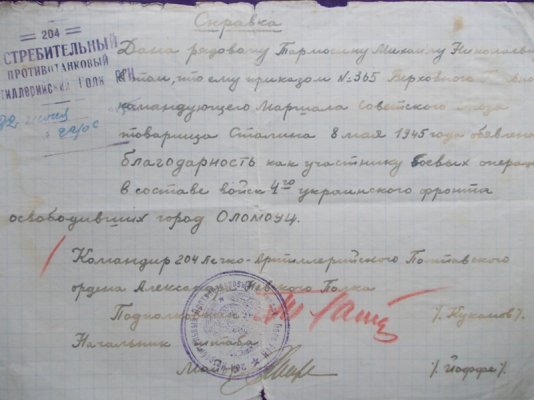 Справка
204
СТРЕБИТЕЛЬНЫЙ
ПРОТИВОТАНКОВЫЙ
ТИЛЛЕРИЙСКИЙ ПОЛК РГК
Дана рядовому Тармосину Михаилу Николаеви
в том, что ему приказом № 365 Верховного
командующего Маршала Советского
товарища Сталина 8 мая 1945 года объявлено
благодарность как участнику боевых операц
в составе войск 4го украинского фронта
освободивших город Оломоуц.
Командир 204 Легко-Артиллерийского Полтавского
ордена Александра Невского Полка
Подполко /Куканов/.
Начальник штаба
Майор /Иоффе/.